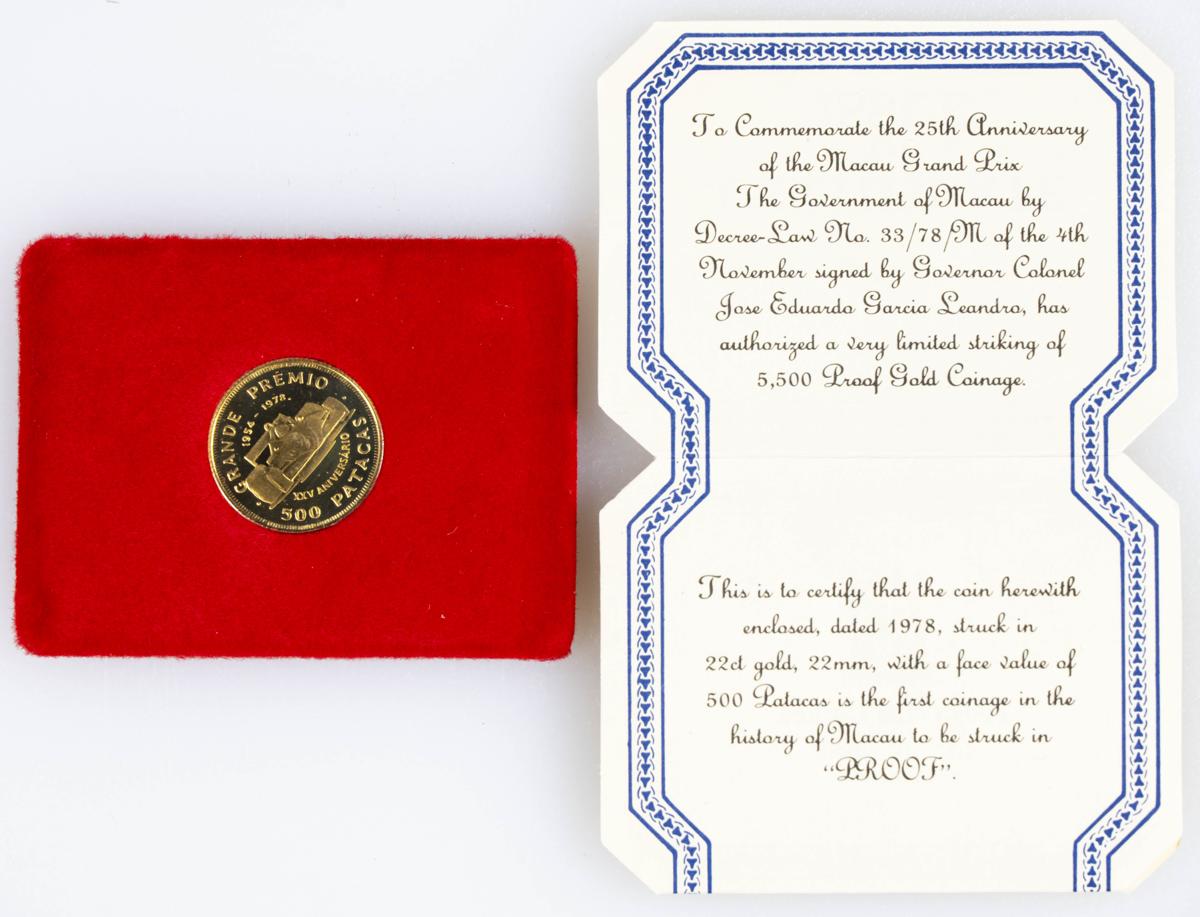 GRANDE PRÉMIO
1954 - 1978.
XXV ANIVERSÁRIO
500 PATACAS
To Commemorate the 25th Anniversary
of the Macau Grand Prix
The Government of Macau by
Decree-Law No. 33/78/M of the 4th
November signed by Governor Colonel
Jose Eduardo Garcia Leandro, has
authorized a very limited striking of
5,500 Proof Gold Coinage.
This is to certify that the coin herewith
enclosed, dated 1978, struck in
22ct gold, 22mm, with a face value of
500 Patacas is the first coinage in the
history of Macau to be struck in
“PROOF”.